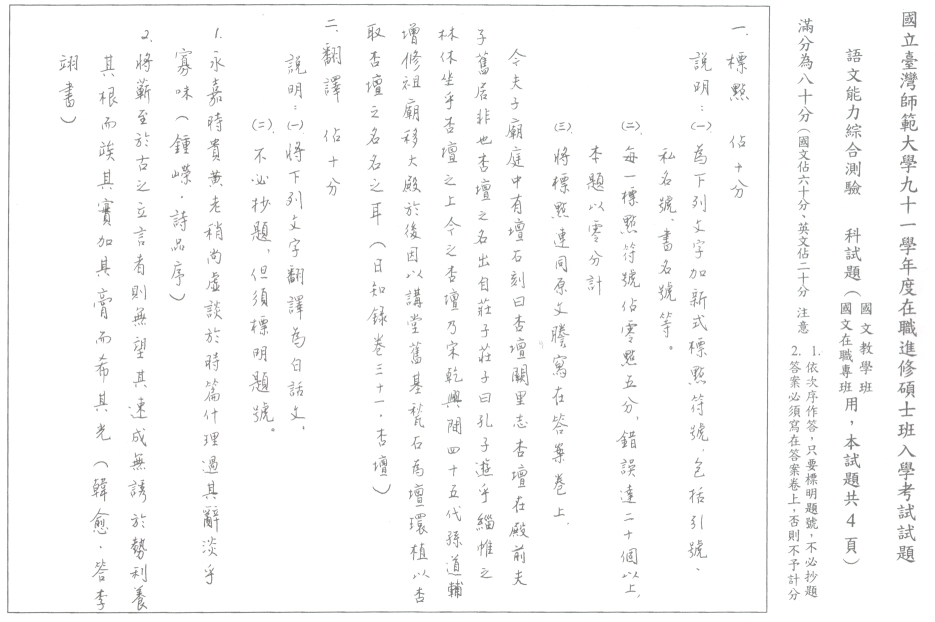 國立臺灣師範大學九十一學年度在職進修碩士班入學考試試題
語文能力綜合測驗　科試題（國文教學班
國文在職專班用，本試題共4頁）
滿分為八十分（國文佔六十分、英文佔二十分　注意
1. 依次序作答，只要標明題號，不必抄題
2. 答案必須寫在答案卷上，否則不予計分
一. 標點　佔十分
說明：(一) 為下列文字加新式標點符號，包括引號、
私名號、書名號等。
(二) 每一標點符號佔零點五分，錯誤達二十個以上，
本題以零分計
(三) 將標點連同原文謄寫在答案卷上，
今夫子廟庭中有壇石刻曰杏壇闕里志杏壇在殿前夫
子舊居非也杏壇之名出自莊子莊子曰孔子遊乎緇帷之
林休坐乎杏壇之上今之杏壇乃宋乾興間四十五代孫道輔
增修祖廟移大殿於後因以講堂舊基甃石為壇環植以杏
取杏壇之名名之耳（日知錄卷三十一．杏壇）
二. 翻譯　佔十分
說明：(一) 將下列文字翻譯為白話文，
(二) 不必抄題，但須標明題號。
1. 永嘉時貴黃老稍尚虛談於時篇什理過其辭淡乎
寡味（鍾嶸．詩品序）
2. 將蘄至於古之立言者則無望其速成無誘於勢利養
其根而竢其實加其膏而希其光（韓愈．答李
翊書）